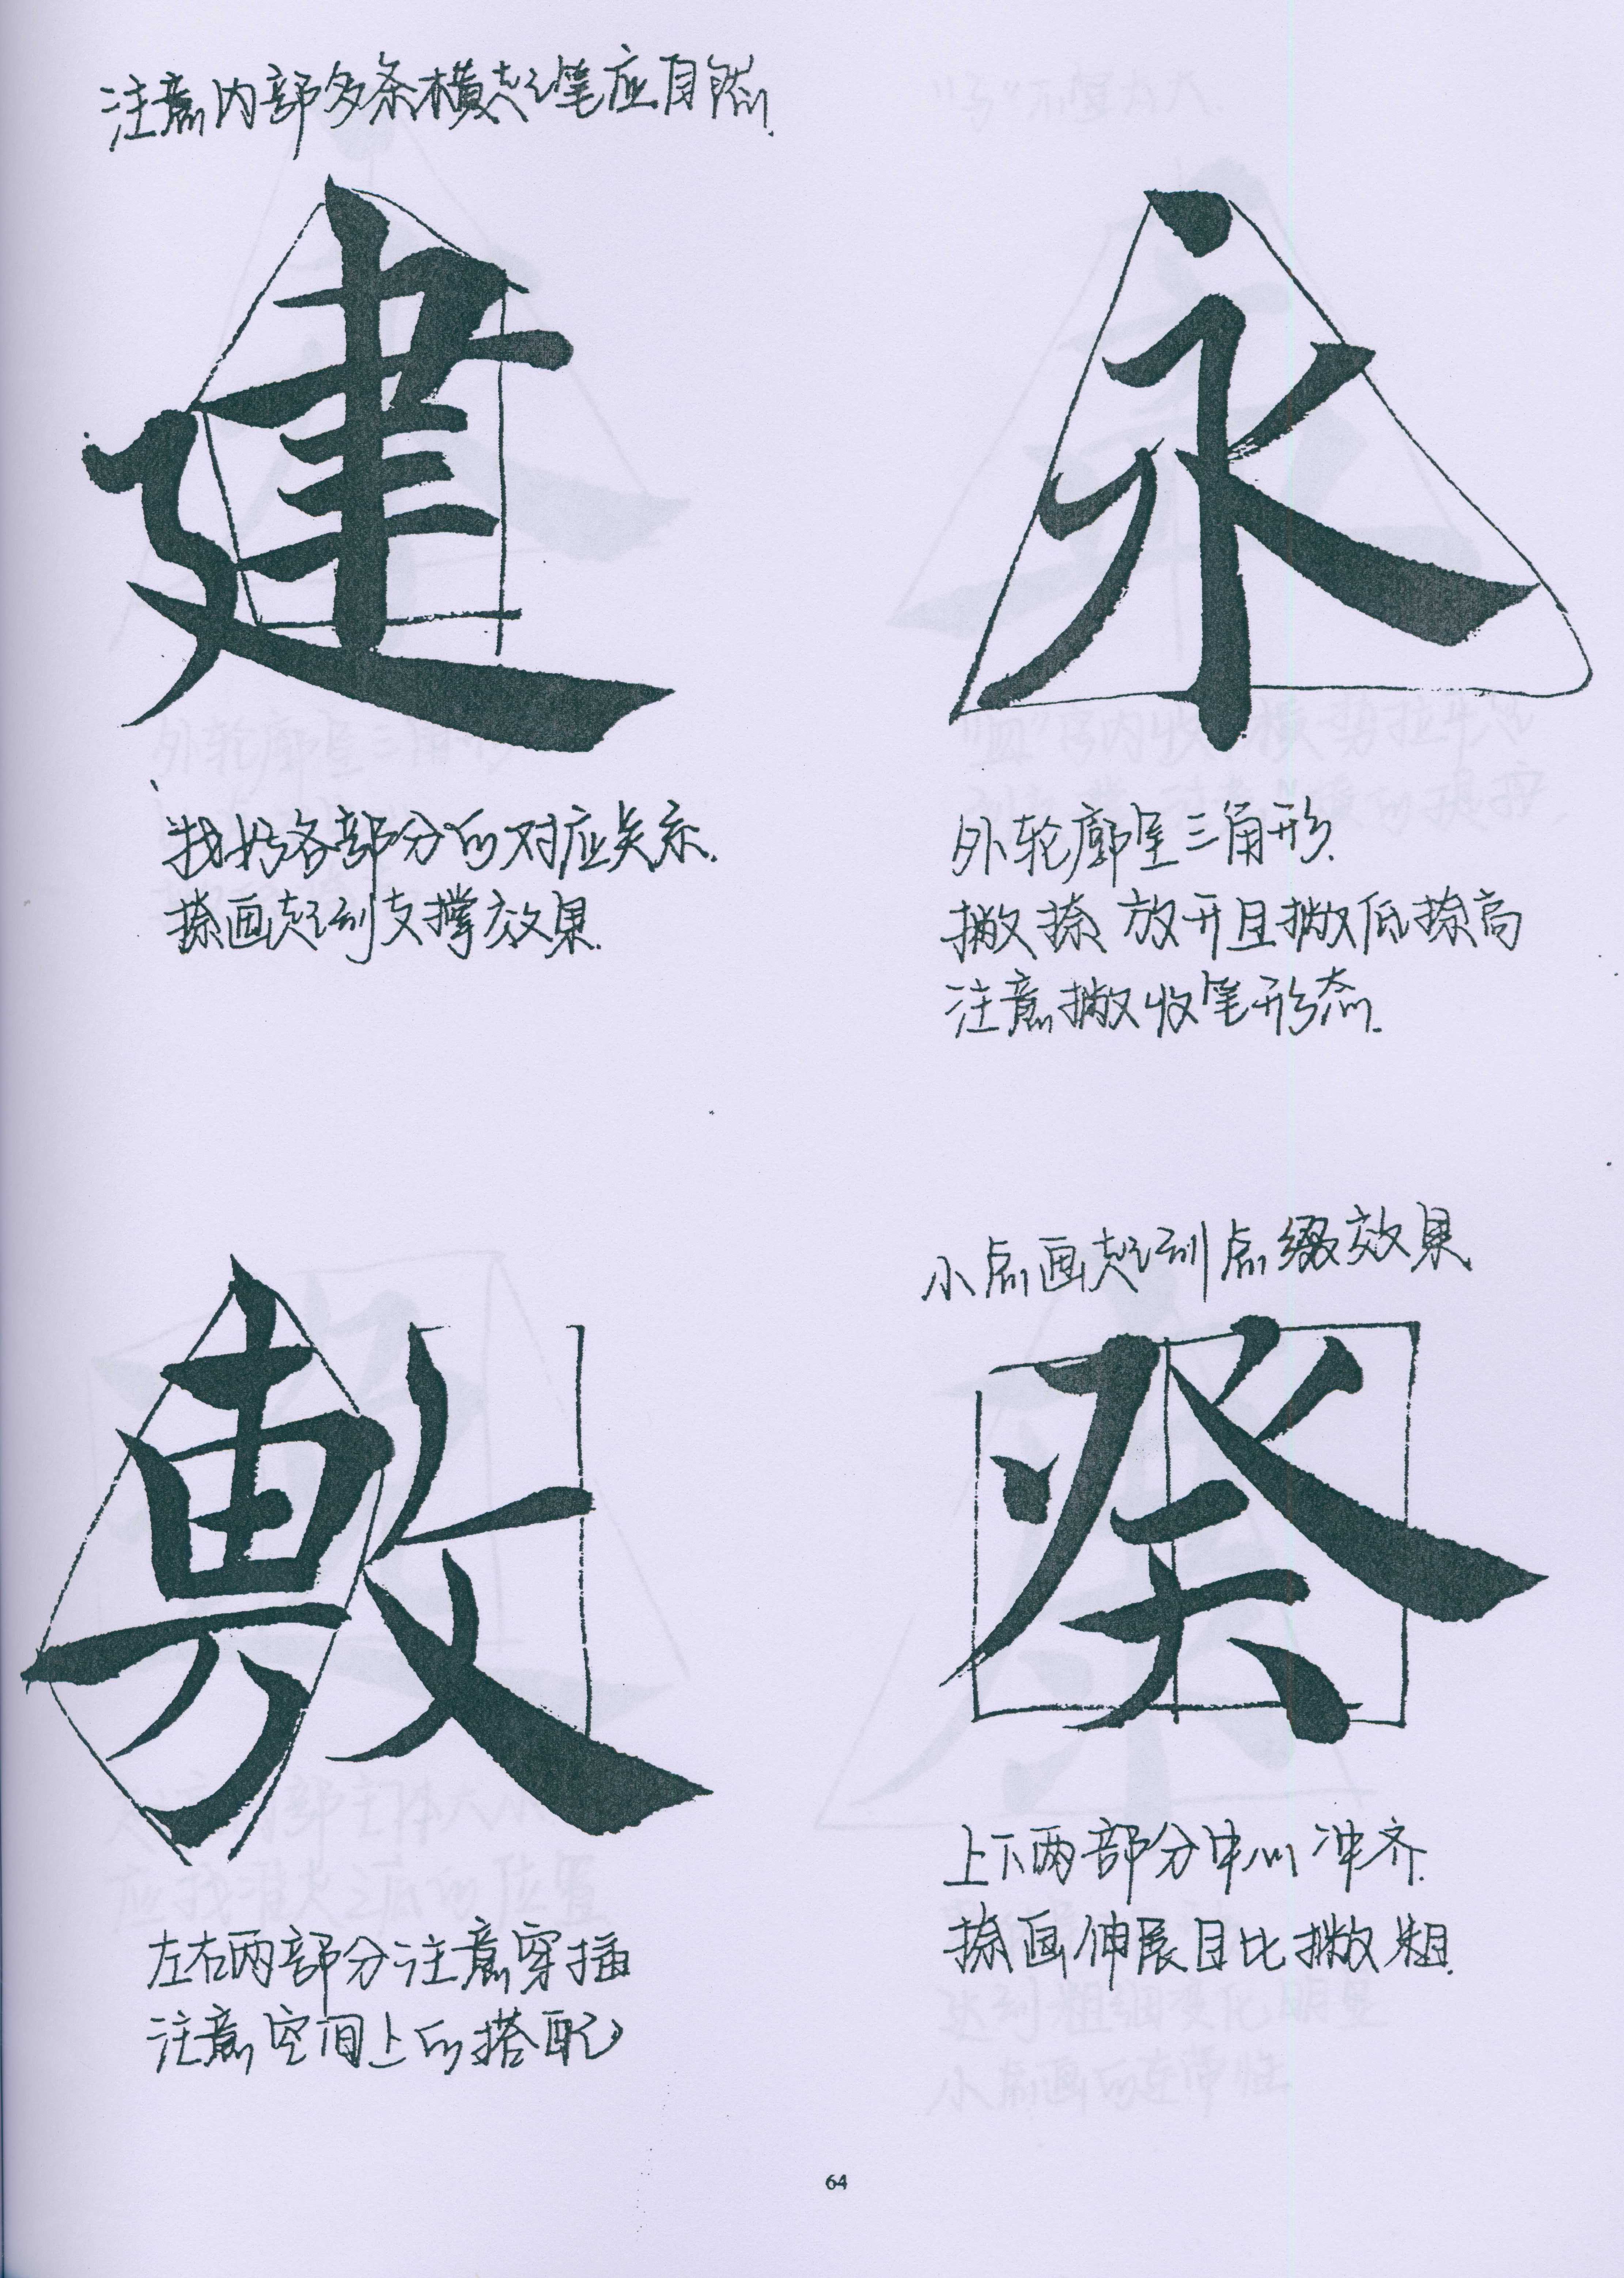 注意内部多条横起笔应自然.
建
找好各部分的对应关系.
捺画起到支撑效果.
永
外轮廓呈三角形.
撇捺放开且撇低捺高
注意撇收笔形态.
敷
左右两部分注意穿插
注意空间上的搭配
小点画起到点缀效果
癸
上下两部分中心冲齐.
捺画伸展且比撇粗.
64